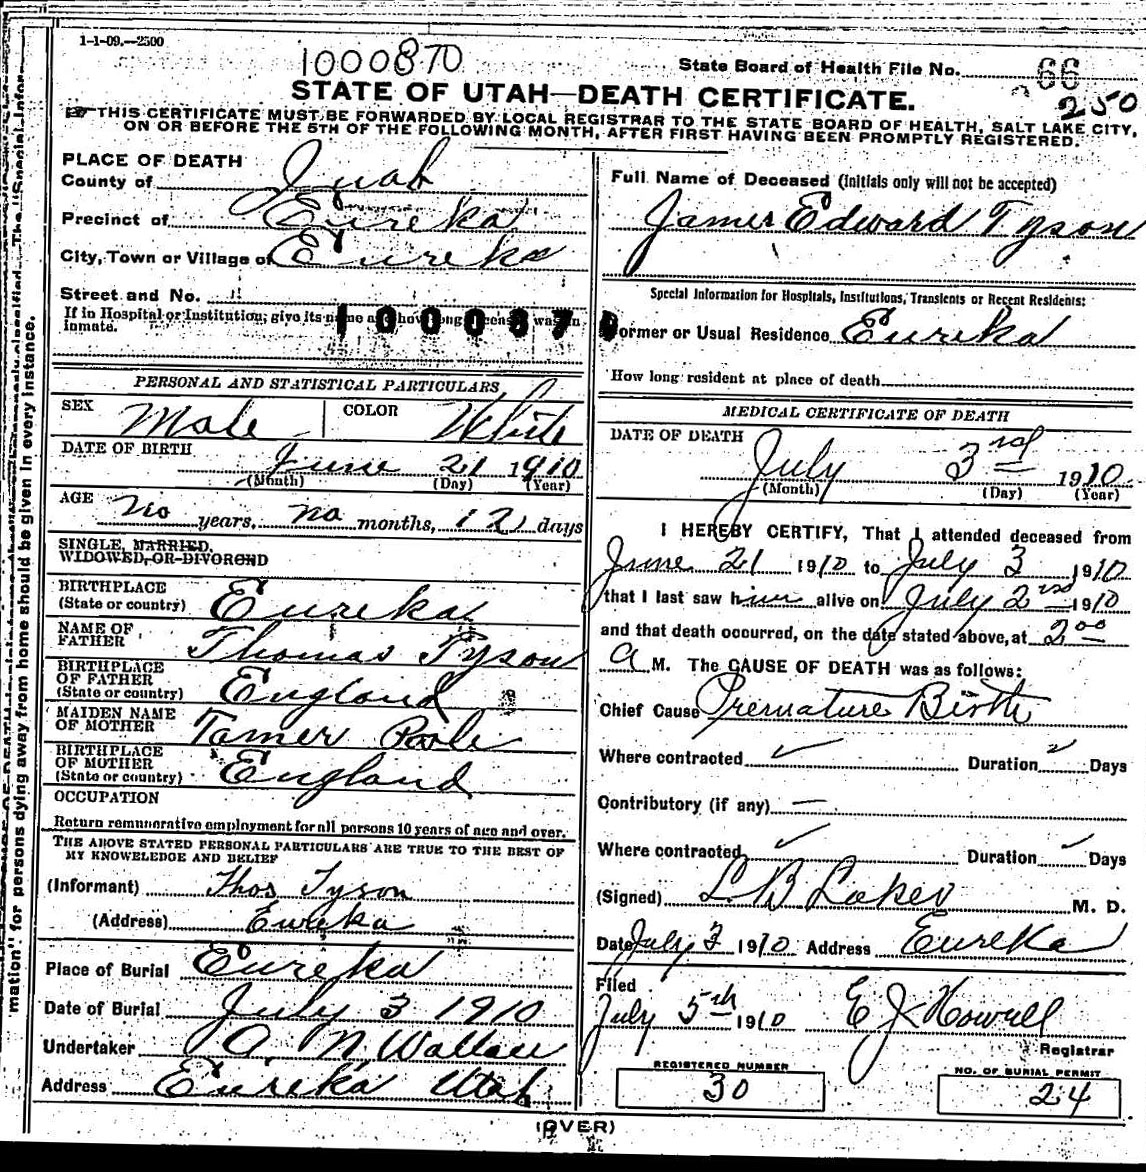 1-1-09.—2500
1000870
State Board of Health File No. 66
250
STATE OF UTAH—DEATH CERTIFICATE.
THIS CERTIFICATE MUST BE FORWARDED BY LOCAL REGISTRAR TO THE STATE BOARD OF HEALTH, SALT LAKE CITY,
ON OR BEFORE THE 5TH OF THE FOLLOWING MONTH, AFTER FIRST HAVING BEEN PROMPTLY REGISTERED.
PLACE OF DEATH
County of Juab
Precinct of Eureka
City, Town or Village of Eureka
Street and No.
If in Hospital or Institution, give its name and how long deceased was an
inmate.
PERSONAL AND STATISTICAL PARTICULARS
SEX Male COLOR White
DATE OF BIRTH June 21 1910
(Month) (Day) (Year)
AGE no years, no months, 12 days
SINGLE, MARRIED,
WIDOWED, OR DIVORCED
BIRTHPLACE
(State or country) Eureka
NAME OF
FATHER Thomas Tyson
BIRTHPLACE
OF FATHER
(State or country) England
MAIDEN NAME
OF MOTHER Tamer Poole
BIRTHPLACE
OF MOTHER
(State or country) England
OCCUPATION
Return remunerative employment for all persons 10 years of age and over.
THE ABOVE STATED PERSONAL PARTICULARS ARE TRUE TO THE BEST OF
MY KNOWELEDGE AND BELIEF
(Informant) Thos Tyson
(Address) Eureka
Place of Burial Eureka
Date of Burial July 3 1910
Undertaker A. N. Wallace
Address Eureka Utah
Full Name of Deceased (initials only will not be accepted)
James Edward Tyson
Special Information for Hospitals, Institutions, Transients or Recent Residents:
Former or Usual Residence Eureka
How long resident at place of death
MEDICAL CERTIFICATE OF DEATH
DATE OF DEATH July 3rd 1910
(Month) (Day) (Year)
I HEREBY CERTIFY, That I attended deceased from
June 21 1910 to July 3 1910
that I last saw him alive on July 2nd 1910
and that death occurred, on the date stated above, at 2 00
a M. The CAUSE OF DEATH was as follows:
Chief Cause Premature Birth
Where contracted Duration Days
Contributory (if any) —
Where contracted Duration Days
(Signed) L B Laker M. D.
Date July 3 1910 Address Eureka
Filed
July 5th 1910 E J Howell
Registrar
REGISTERED NUMBER
30
NO. OF BURIAL PERMIT
24
(OVER)
mation" for persons dying away from home should be given in every instance.